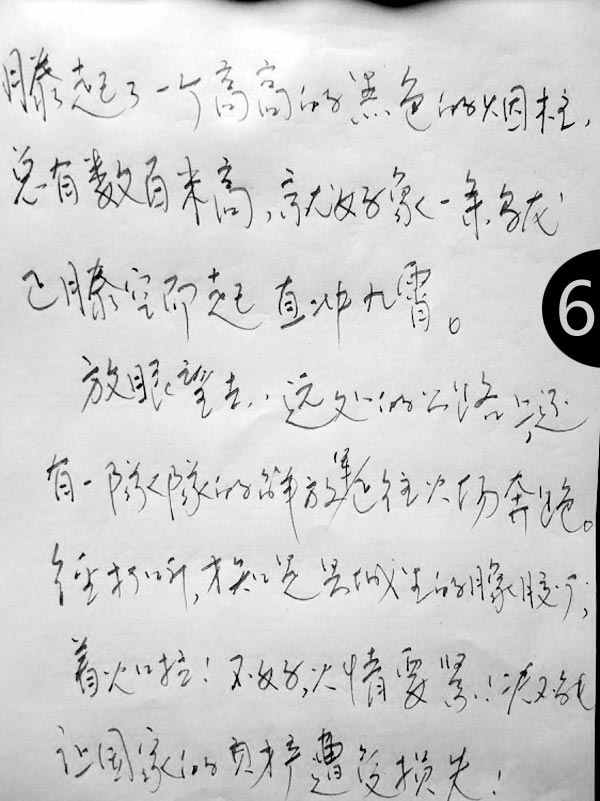 腾起了一个高高的黑色的烟柱,
总有数百米高,就好象一条乌龙
飞腾空而起直冲九霄。
6
放眼望去,远处的公路上,还
有一队队的解放军在往火场奔跑。
经打听,才知是县城里的橡胶厂,
着火啦!不好,火情要紧!决不能
让国家的财产遭受损失!